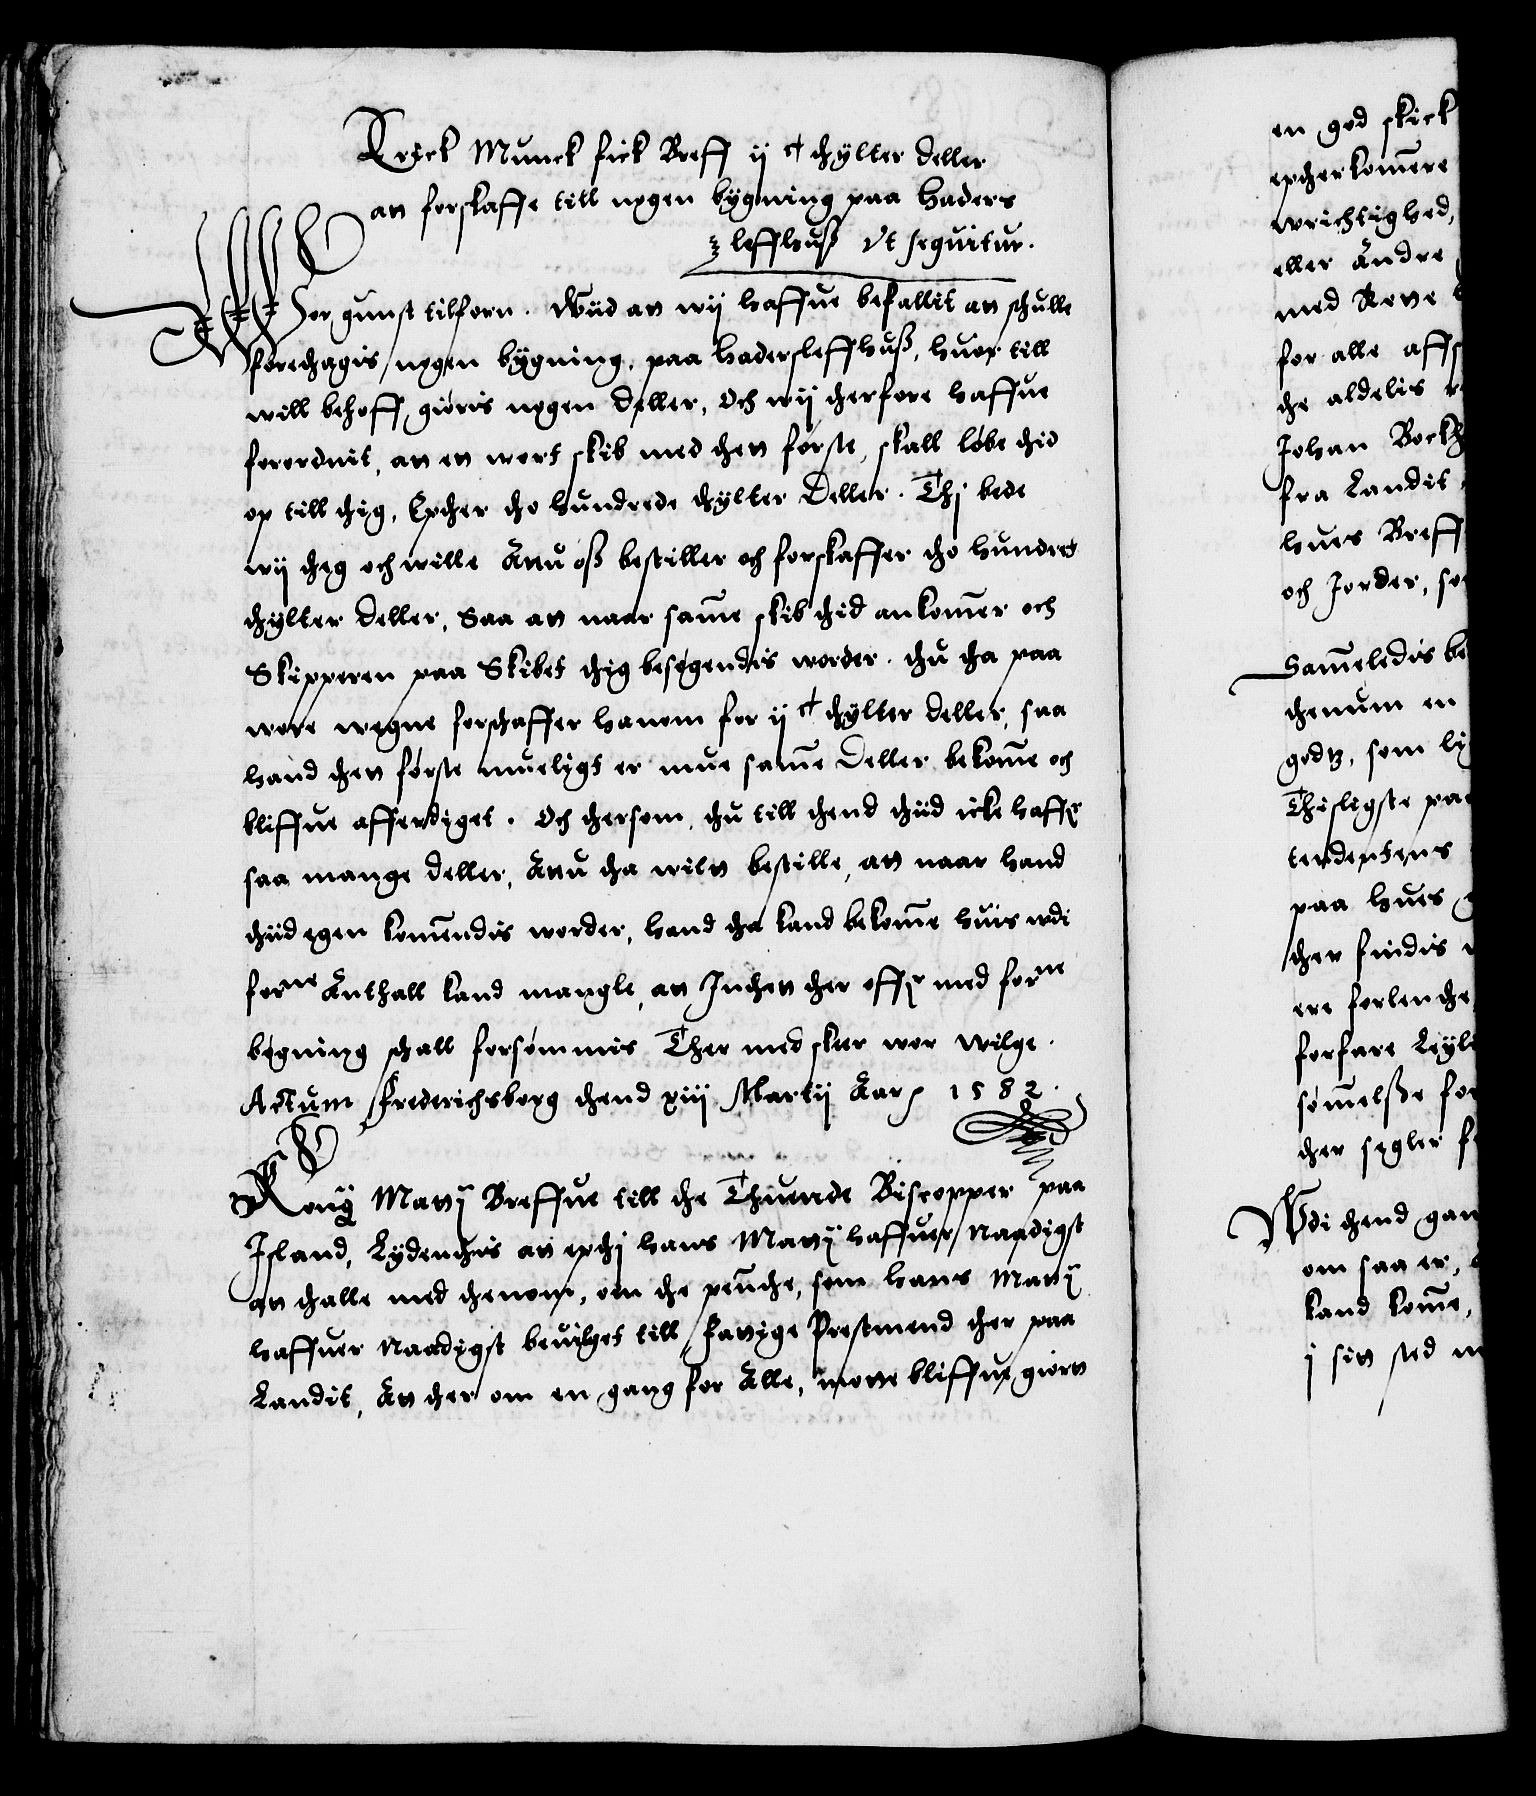 Erick Munck fick Breff ij c thylter deller
att forskaffe till nogen bygning paa Haders
leffhuß Vt sequitur.
Wor gunst tilforn. Wiid att wij haffue befallit att schulle
foretagis nogen bygning, paa Hadersleffhuß, huor till
will behoff giøris nogen deller, Och wij therfore haffue
forordnit, att en wort skib med thet første, skall løbe thid
op till thig, Epther tho hundrede thylter Deller. Thj bede
wij theg och wille Attu oß bestiller och forskaffer tho hundret
thylter deller, Saa att naar same skib thid ankomer och
Skipperen paa Skibet thig besøgendis worder. thu tha paa
wore wegne forschaffer hanom for ij c thylter deller, saa
hand thet første mueligt er mue same Deller bekome och
bliffue afferdiget. Och thersom thu till thend thiid icke haffr
saa mange deller, Attu tha wilt bestille, att naar hand
thiid egen komendis worder, hand tha kand bekome huis wdi
forne Anthall kand mangle, att Inthet ther offr med forne
bygning schall forsømmis Ther med skeer wor wilge.
Actum Frederichsborg thend xiij Martij Aar 1582.
Kong Matt Breffue till the Thuende Biscopper paa
Island, Lydendis att epthj hans Matt haffuer Naadigst
att thalle med thenom, om the pendge, som hans Matt
haffuer Naadigst beuilget till fattige Prestmend ther paa
Landit, At ther om en gang for Alle, motte bliffue giort
en god skick
epther komere
wrichtighed,
eller Andre
med Rette
for alle aff
the aldelis
Johan Bockh
fra Landit
hues Breff
och Jorder, so
Sameledis be
thenum en
godtz, som ly
Thisligste paa
tendentens
paa hues
ther findis
ere forlenthe
forfare Leyli
sømelße for
ther segler f
Wdi thend gan
om saa er,
kand kome,
j sin sted